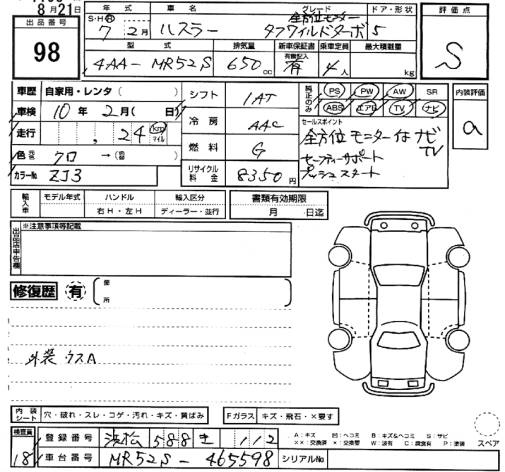 8月21日
出品番号
98
年式 車名 グレード ドア・形状
S・H・R 7年 2月 ハスラー 全方位モニター タフワイルドターボ 5
型式 排気量 新車保証書 乗車定員 最大積載量
有書記入
4AA- MR52S 650cc 有 4人 kg
評価点
S
車歴 自家用・レンタ
車検 10年 2月( 日)
走行 , , 24 km マイル
色 元色 クロ → (色替)
カラーNo ZJ3
シフト 1AT
冷房 AAC
燃料 G
リサイクル料金 8350円
純正のみ PS PW AW SR
ABS エアB TV ナビ
セールスポイント
全方位モニター付ナビ
TV
セーフティーサポート
プッシュスタート
内装評価
a
輸入車 モデル年式 ハンドル 輸入区分
年 右H・左H ディーラー・並行
書類有効期限
月 日迄
出品店申告欄
※注意事項等記載
修復歴 有 箇所
外装 ウスA
内装シート 穴・破れ・スレ・コゲ・汚れ・キズ・黄ばみ
Fガラス キズ・飛石・×要す
検査員
18
登録番号 浜松 588 き 112
車台番号 MR52S - 465598
シリアルNo
A:キズ 凹:ヘコミ B キズ&ヘコミ S:サビ
××:交換済 ×:要交換 W:波有 C:腐食有 P:塗装
スペア